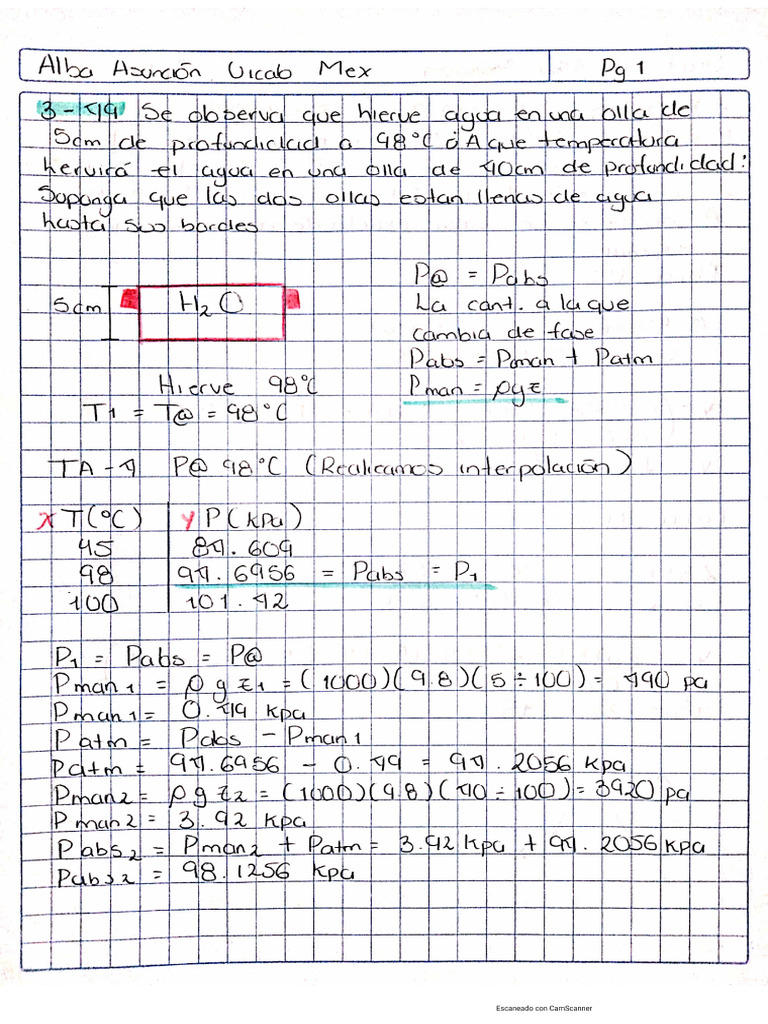 Alba Asunción Uicab Mex Pg 1
3-49 Se observa que hierve agua en una olla de
5cm de profundidad a 98°C ¿A que temperatura
hervirá el agua en una olla de 40cm de profundidad?
Suponga que las dos ollas estan llenas de agua
hasta sus bordes
5cm H₂O
P@ = Pabs
La cant. a la que
cambia de fase
Pabs = Pman + Patm
Pman = ρgz
Hierve 98°C
T1 = T@ = 98°C
TA-4 P@ 98°C (Realicamos interpolación)
x T(°C) y P(kpa)
95 84.609
98 94.6956 = Pabs = P₁
100 101.42
P₁ = Pabs = P@
Pman1 = ρgz1 = (1000)(9.8)(5÷100) = 490 pa
Pman1 = 0.49 kpa
Patm = Pabs - Pman1
Patm = 94.6956 - 0.49 = 94.2056 kpa
Pman2 = ρgz2 = (1000)(9.8)(40÷100) = 3920 pa
Pman2 = 3.92 kpa
Pabs2 = Pman2 + Patm = 3.92 kpa + 94.2056 kpa
Pabs2 = 98.1256 kpa
Escaneado con CamScanner